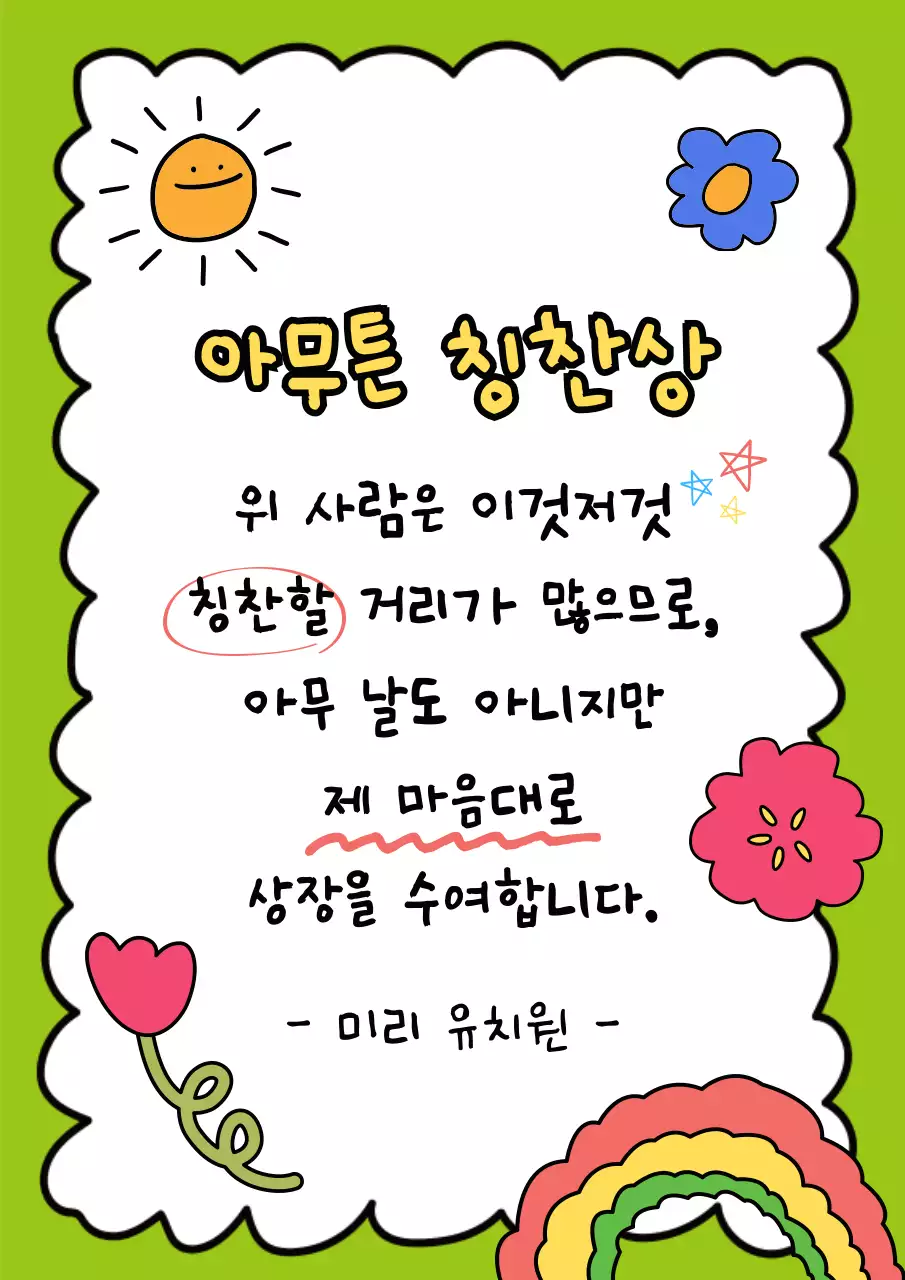 아무튼 칭찬상
위 사람은 이것저것
칭찬할 거리가 많으므로,
아무 날도 아니지만
제 마음대로
상장을 수여합니다.
- 미리 유치원 -